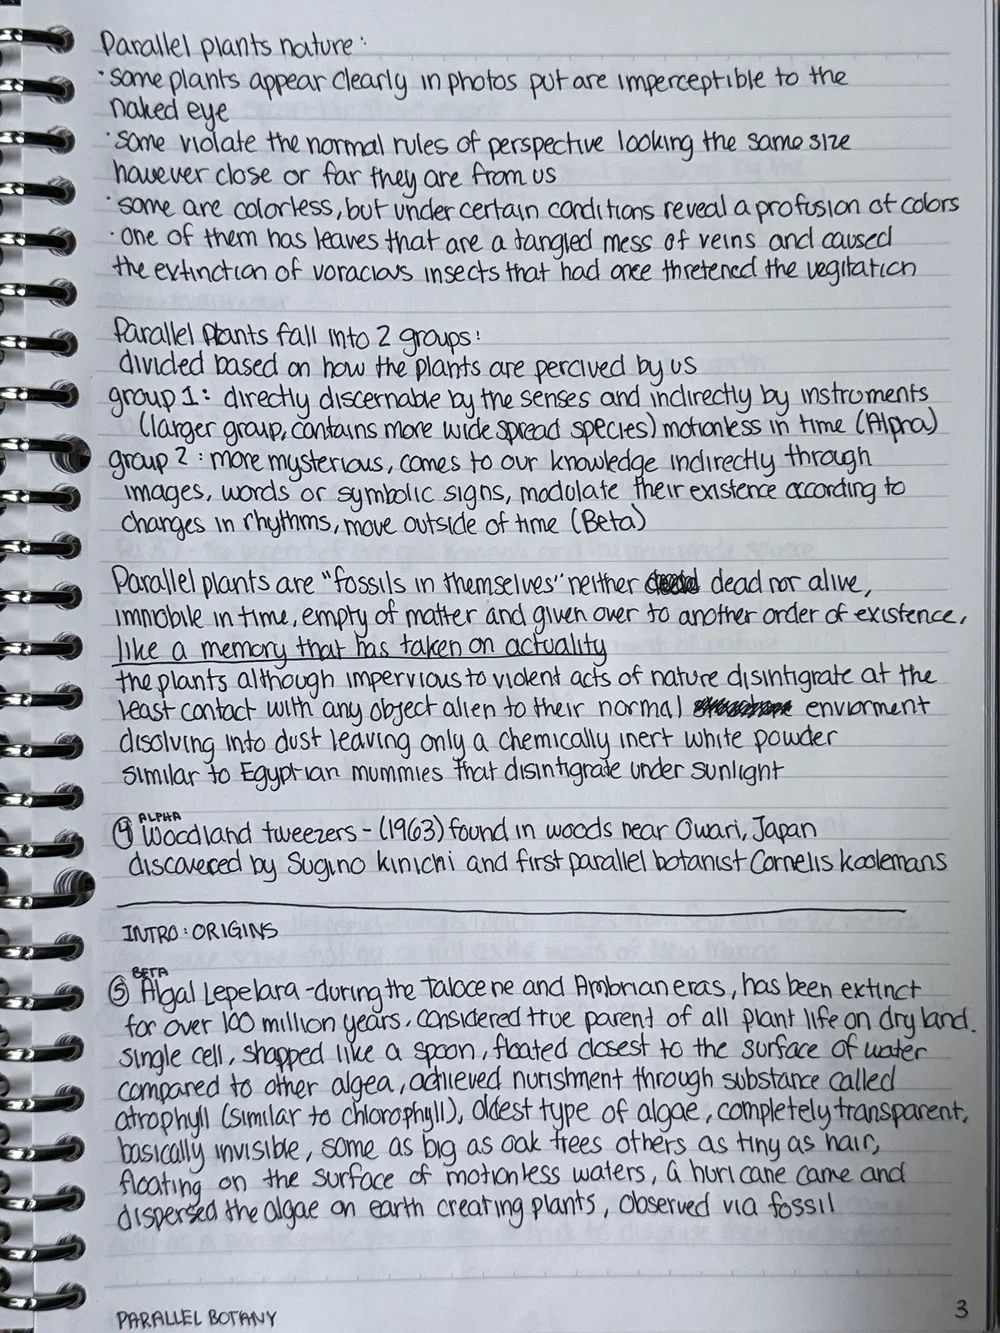 Parallel plants nature:
·some plants appear clearly in photos put are imperceptible to the
naked eye
·some violate the normal rules of perspective looking the same size
however close or far they are from us
·some are colorless, but under certain conditions reveal a profusion of colors
·one of them has leaves that are a tangled mess of veins and caused
the extinction of voracious insects that had once thretened the vegitation
Parallel Plants fall into 2 groups:
divided based on how the plants are percived by us
group 1: directly discernable by the senses and indirectly by instruments
(larger group, contains more wide spread species) motionless in time (Alpha)
group 2: more mysterious, comes to our knowledge indirectly through
images, words or symbolic signs, modulate their existence according to
changes in rhythms, move outside of time (Beta)
Parallel plants are "fossils in themselves" neither dead nor alive,
immobile in time, empty of matter and given over to another order of existence,
like a memory that has taken on actuality
the plants although impervious to violent acts of nature disintigrate at the
least contact with any object alien to their normal enviorment
disolving into dust leaving only a chemically inert white powder
similar to Egyptian mummies that disintigrate under sunlight
ALPHA
④ Woodland tweezers - (1963) found in woods near Owari, Japan
discovered by Sugino kinichi and first parallel botanist Cornelis koolemans
INTRO: ORIGINS
BETA
⑤ Algal Lepelara - during the Talocene and Ambrian eras, has been extinct
for over 100 million years, considered true parent of all plant life on dry land.
single cell, shapped like a spoon, floated closest to the surface of water
compared to other algea, achieved nurishment through substance called
atrophyll (similar to chlorophyll), oldest type of algae, completely transparent,
basically invisible, some as big as oak trees others as tiny as hair,
floating on the surface of motionless waters, a huricane came and
dispersed the algae on earth creating plants, observed via fossil
PARALLEL BOTANY
3